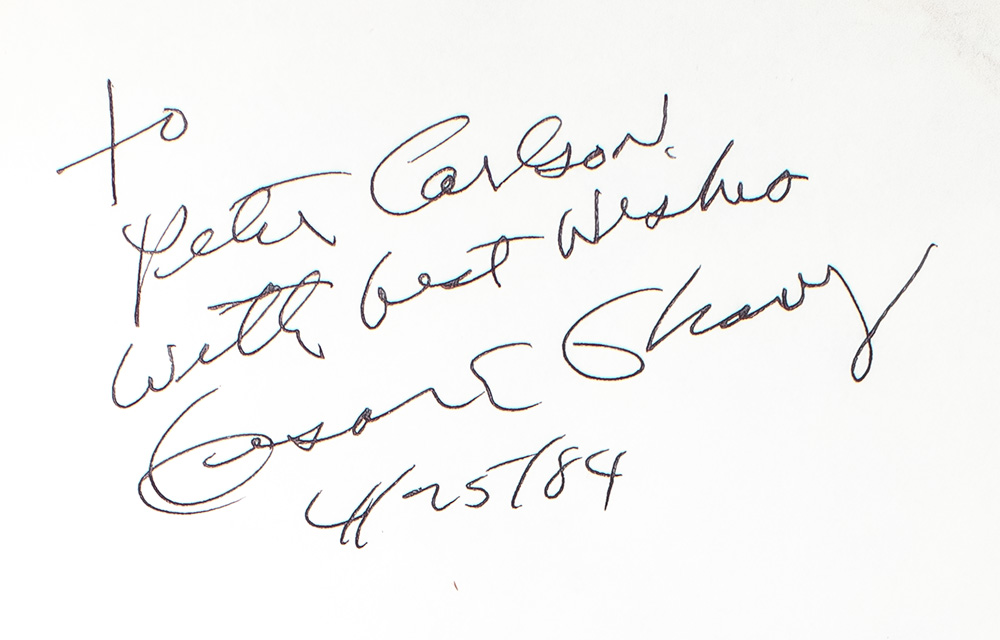 to
Peter Carlson.
with best wishes
Cesar E Chavez
4/25/84